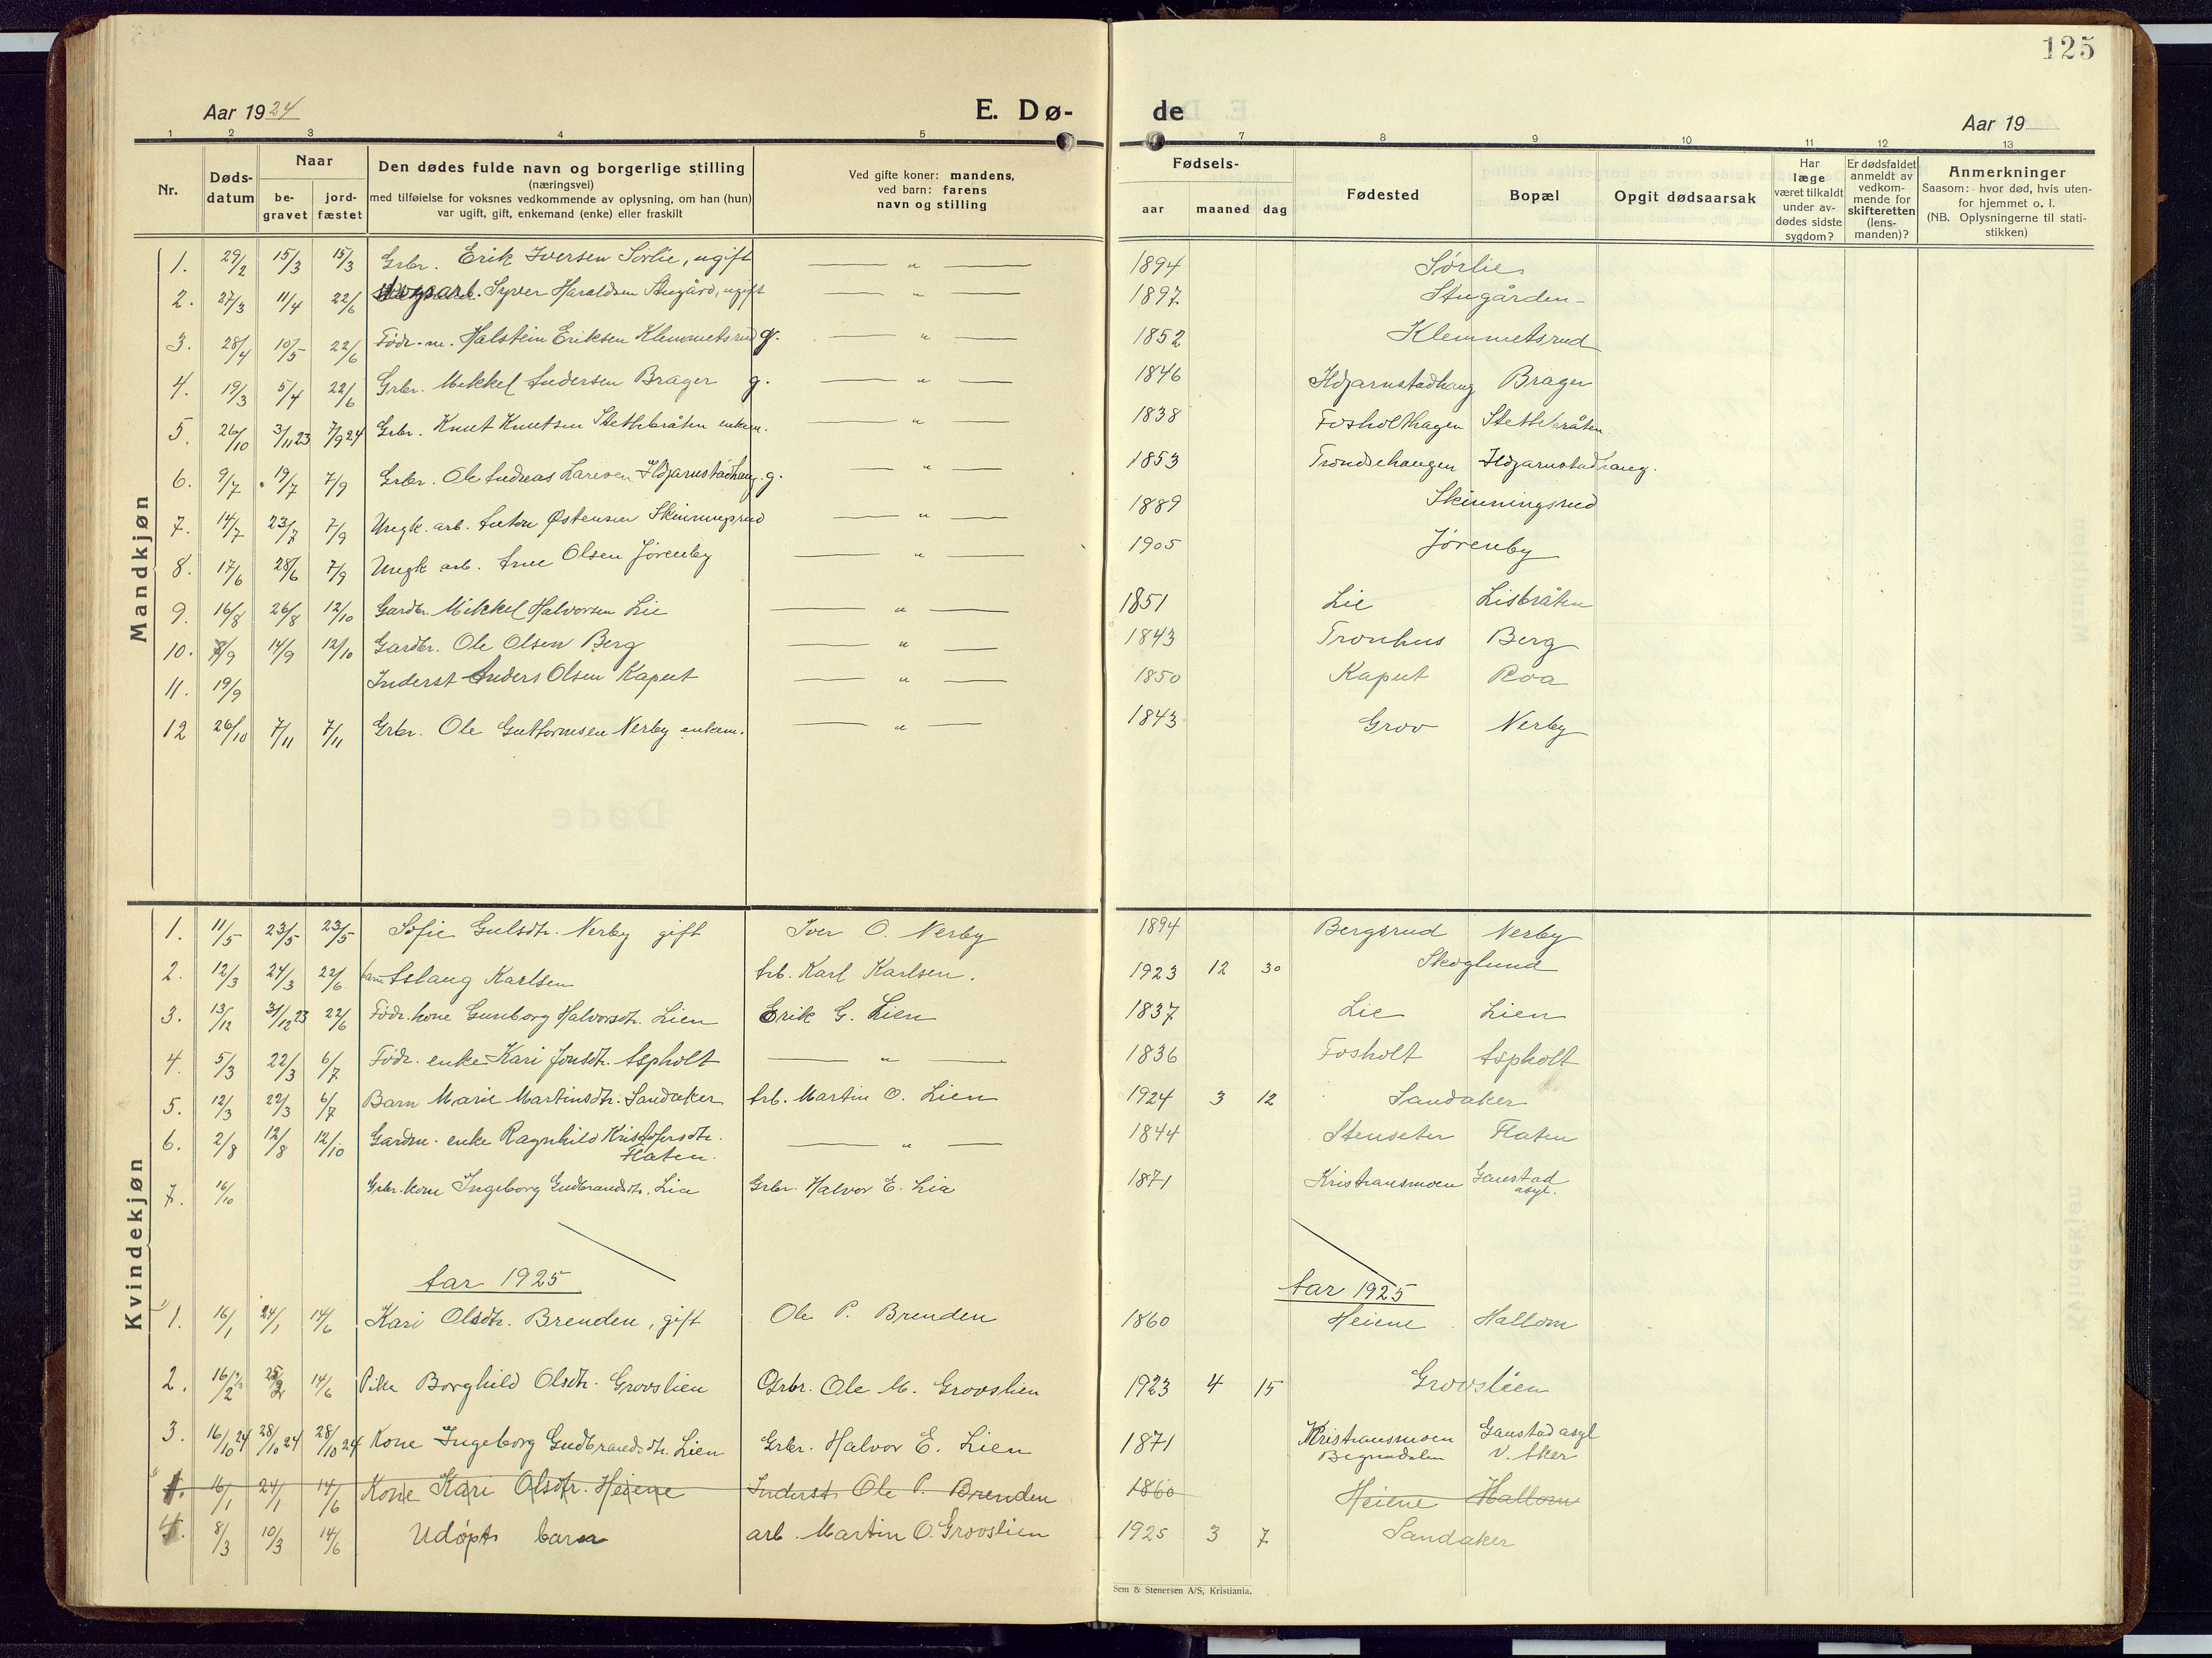 125
Aar 1924 E. Dø- de Aar 19
1 2 3 4 5 7 8 9 10 11 12 13
Nr.
Døds-
datum
Naar
be-
gravet
jord-
fæstet
Den dødes fulde navn og borgerlige stilling
(næringsvei)
med tilføielse for voksnes vedkommende av oplysning, om han (hun)
var ugift, gift, enkemand (enke) eller fraskilt
Ved gifte koner: mandens,
ved barn: farens
navn og stilling
Fødsels-
aar maaned dag
Fødested
Bopæl
Opgit dødsaarsak
Har
læge
været tilkaldt
under av-
dødes sidste
sygdom?
Er dødsfaldet
anmeldt av
vedkom-
mende for
skifteretten
(lens-
manden)?
Anmerkninger
Saasom: hvor død, hvis uten-
for hjemmet o. l.
(NB. Oplysningerne til stati-
stikken)
Mandkjøn
1. 29/2 15/3 15/3 Grbr. Erik Iversen Sørlie, ugift — " — 1894 Sørlie
2. 27/3 11/4 22/6 Skogsarb. Syver Haraldsen Stugård, ugift — " — 1897 Stugården
3. 28/4 10/5 22/6 Födr.-m. Halstein Eriksen Klemmetsrud g. — " — 1852 Klemmetsrud
4. 19/3 5/4 22/6 Grbr. Mikkel Andersen Brager g. — " — 1846 Ildjarnstadhaug Brager
5. 26/10 3/11 23 7/9 24 Grbr. Knut Knutsen Stettebråten enkem. — " — 1838 Fosholthagen Stettebråten
6. 9/7 19/7 7/9 Grbr. Ole Andreas Larsen Ildjarnstadhaug. g. — " — 1853 Trondsehaugen Ildjarnstadhaug.
7. 14/7 23/7 7/9 Ungk. arb. Anton Østensen Skinningsrud — " — 1889 Skinningsrud
8. 17/6 28/6 7/9 Ungk arb. Arne Olsen Jørenby — " — 1905 Jørenby
9. 16/8 26/8 12/10 Gardbr. Mikkel Halvorsen Lie — " — 1851 Lie Lisbråten
10. 7/9 14/9 12/10 Gardbr. Ole Olsen Berg — " — 1843 Tronhus Berg
11. 19/9 Inderst Anders Olsen Kaput — " — 1850 Kaput Roa
12 26/10 7/11 7/11 Grbr. Ole Guttormsen Nerby enkem. — " — 1843 Grov Nerby
Kvindekjøn
1. 11/5 23/5 23/5 Sofie Gulsdtr. Nerby gift Iver O. Nerby 1894 Bergsrud Nerby
2. 12/3 24/3 22/6 barn Aslaug Karlsen Arb. Karl Karlsen. 1923 12 30 Skoglund
3. 13/12 31/12 23 22/6 Födr. kone Gunborg Halvorsdtr. Lien Erik G. Lien 1837 Lie Lien
4. 5/3 22/3 6/7 Födr. enke Kari Jonsdtr. Aspholt — " — 1836 Fosholt Aspholt
5. 12/3 22/3 6/7 Barn Marie Martinsdtr. Sandaker Arb. Martin O. Lien 1924 3 12 Sandaker
6. 2/8 12/8 12/10 Gardm. enke Ragnhild Kristofersdtr.
Flaten. — " — 1844 Stenseter Flaten
7. 16/10 Grbr. kone Ingeborg Gudbrandsdtr. Lia Grbr. Halvor E. Lia 1871 Kristiansmoen Gaustad
asyl.
Aar 1925 Aar 1925
1. 16/1 24/1 14/6 Kari Olsdtr. Brenden, gift Ole P. Brenden 1860 Heiene Hallom
2. 16/2 25/2 14/6 Pike Borghild Olsdtr. Grovslien Grbr. Ole M. Grovslien 1923 4 15 Grovslien
3. 16/10 24 28/10 24 28/10 24 Kone Ingeborg Gudbrandsdtr. Lien Grbr. Halvor E. Lien 1871 Kristiansmoen Gaustad asyl
Begnadalen V. Aker
1. 16/1 24/1 14/6 Kone Kari Olsdtr. Heiene Inderst Ole P. Brenden 1860 Heiene Hallom
4. 8/3 10/3 14/6 Udøpt barn arb. Martin O. Grovslien 1925 3 7 Sandaker
Sem & Stenersen A/S, Kristiania.